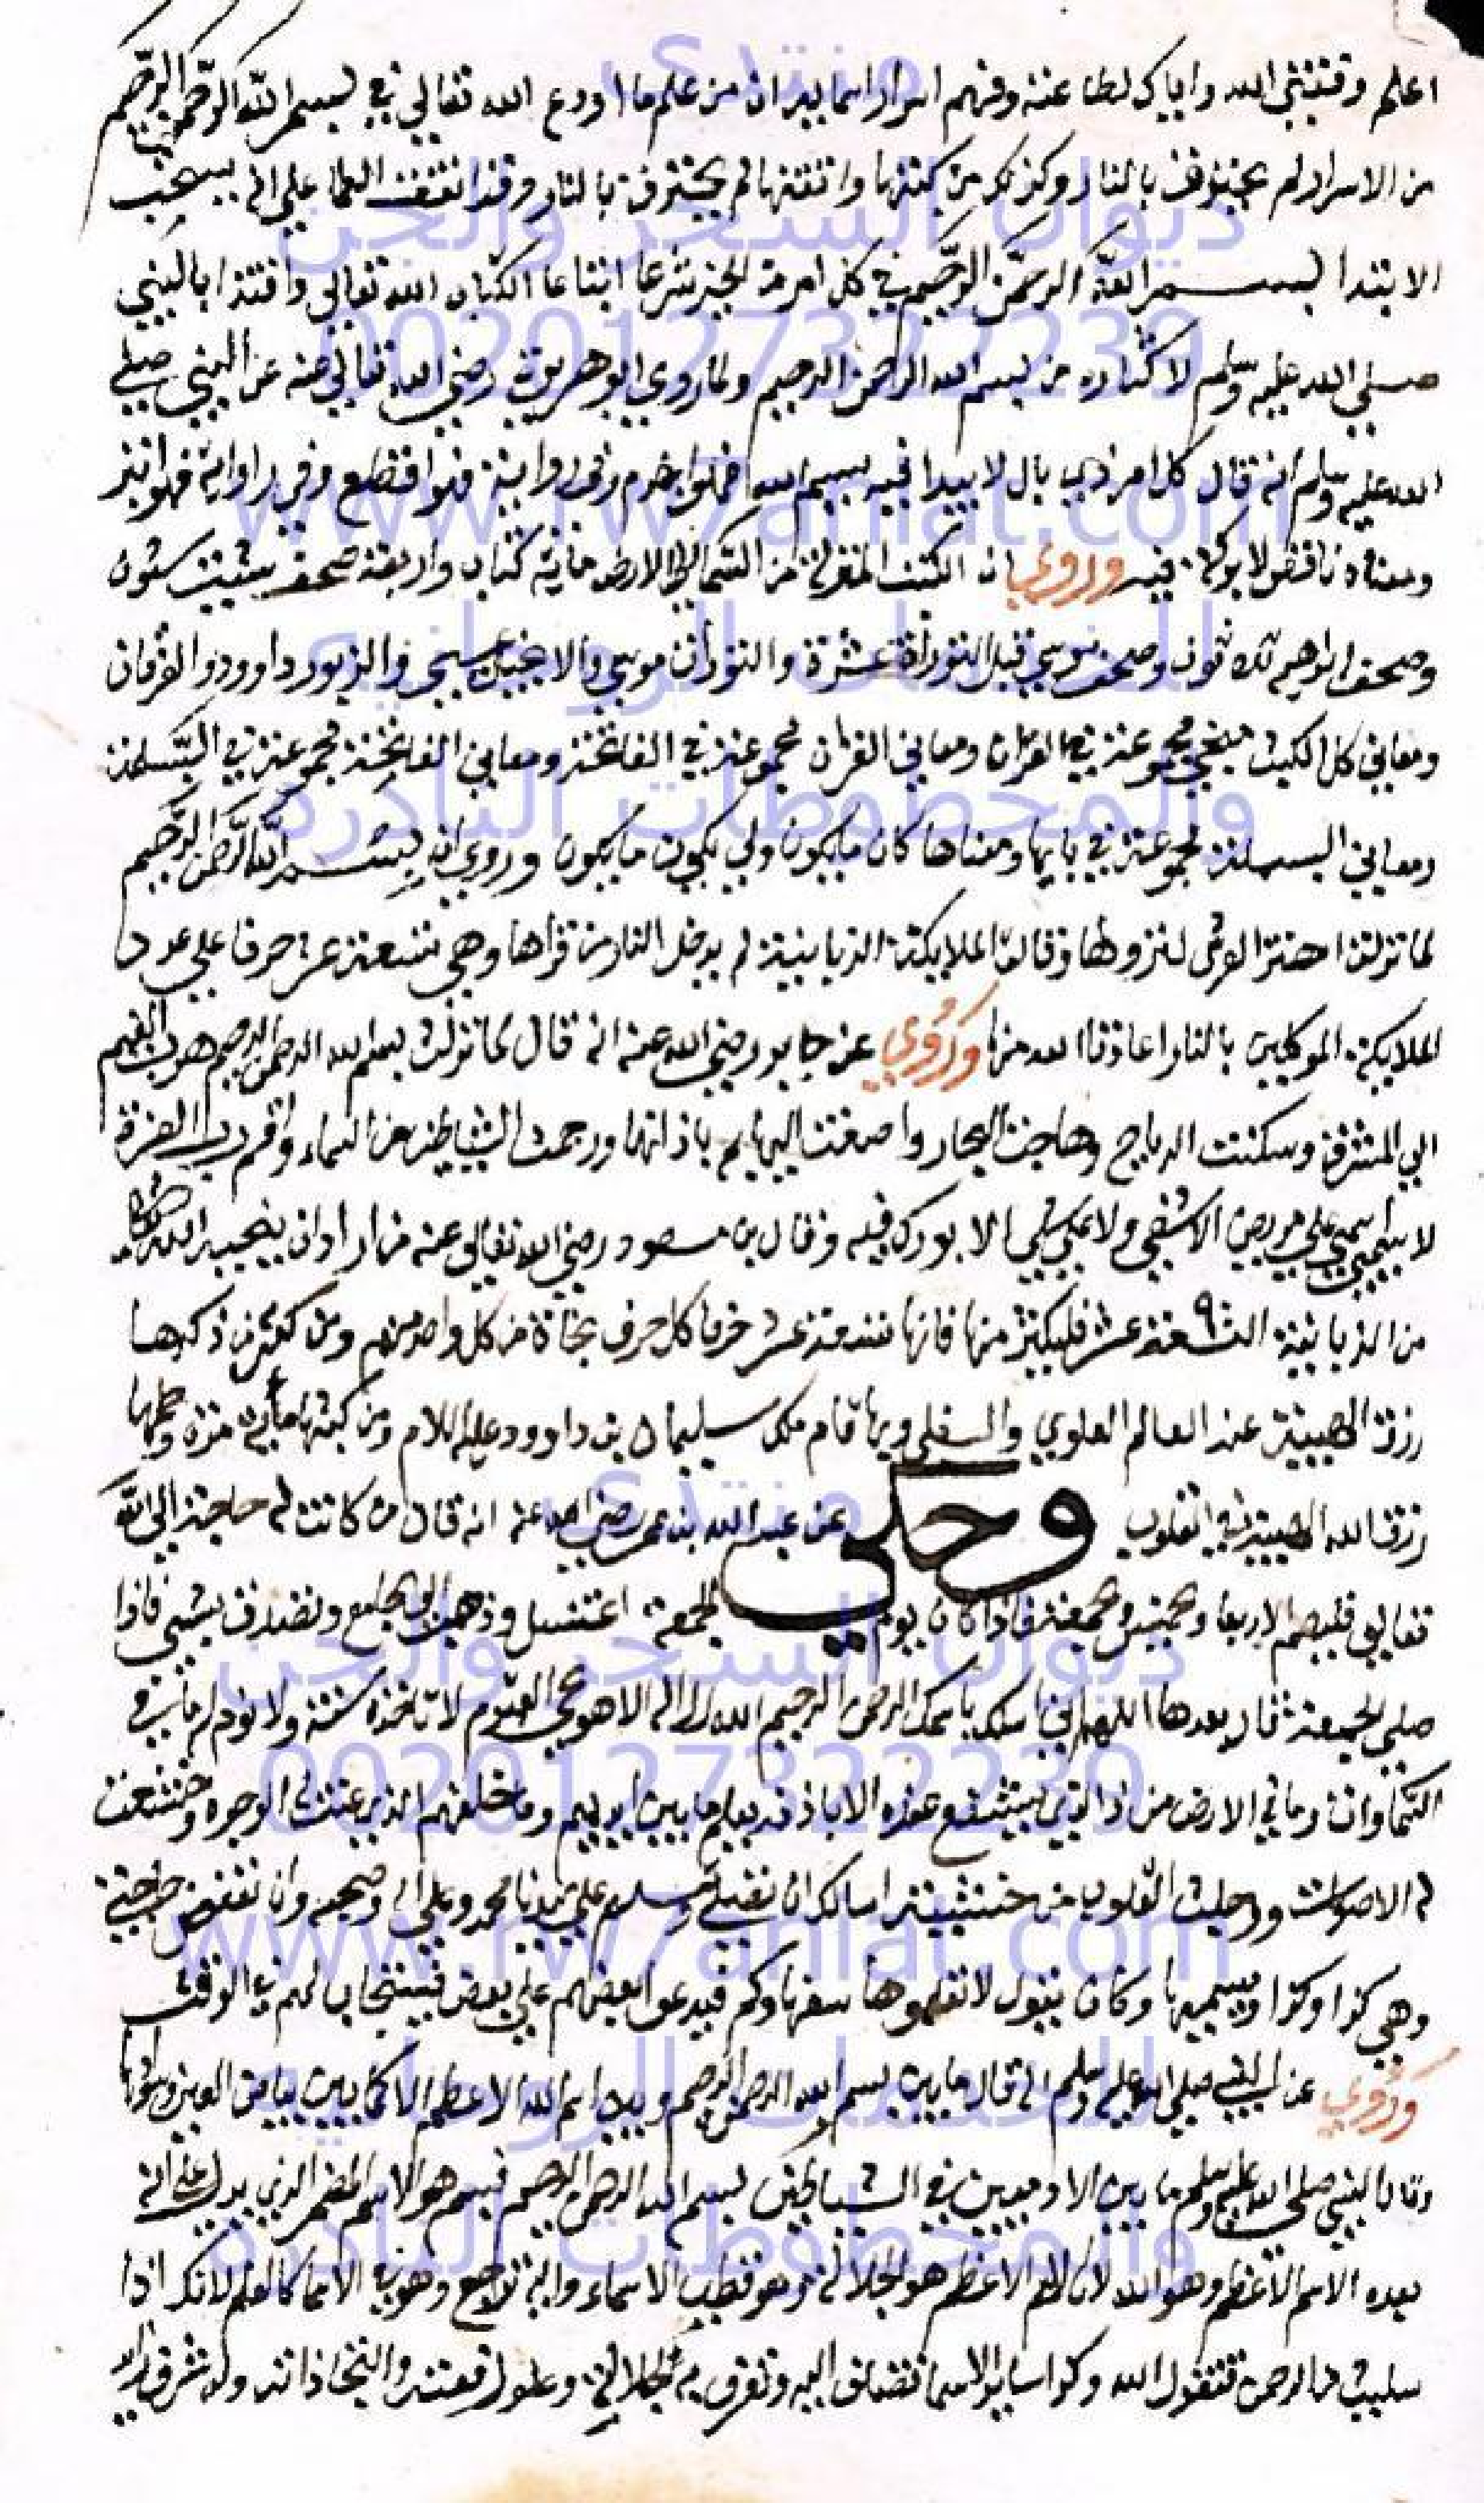 اعلم وفقني الله واياك لطاعته وفهم اسرار اسمايه ان من علم ما اودع الله تعالي في بسم الله الرحمن الرحيم
من الاسرار لم يحترق بالنار وكذلك من كتبها واتقنها لم يحترق بالنار وقد اتفقت العلما علي انه يستحب
الابتدا بسم الله الرحمن الرحيم في كل امر من الخير شرعا اتباعا لكتاب الله تعالي واقتدا بالنبي
صلي الله عليه وسلم لاكثاره من بسم الله الرحمن الرحيم ولما روي ابو هريرة رضي الله تعالي عنه عن النبي صلي
الله عليه وسلم انه قال كل امر ذي بال لا يبدا فيه ببسم الله فهو اجذم وفي رواية فهو اقطع وفي رواية فهو ابتر
ومعناه ناقص لا بركة فيه وروي ان الكتب المنزلة من السما الي الارض ماية كتاب واربعة صحف شيت ستون
وصحف ابراهيم ثلاثون وصحف موسي قبل التوراة عشرة والتوراة موسي والانجيل عيسي والزبور داوود والفرقان
ومعاني كل الكتب مجموعة في القران ومعاني القران مجموعة في الفاتحة ومعاني الفاتحة مجموعة في البسملة
ومعاني البسملة مجموعة في بايها ومعناها كان ما يكون وبي يكون ما يكون وروي ان بسم الله الرحمن الرحيم
لما نزلت اهتز العرش لنزولها وقالت الملايكة الزبانية لم يدخل النار من قراها وهي تسعة عشر حرفا علي عدد
الملايكة الموكلين بالنار اعاذنا الله منها وروي عن جابر رضي الله عنه انه قال لما نزلت بسم الله الرحمن الرحيم هرب الغيم
الي المشرق وسكنت الرياح وهاجت البحار واصغت البهايم باذانها ورجمت الشياطين من السماء واقسم رب العزة
لا يسمي علي مريض الا شفي ولا علي شي الا بورك فيه وقال بن مسعود رضي الله تعالي عنه من اراد ان ينجيه الله تعالي
من الزبانية التسعة عشر فليكثر منها فانها تسعة عشر حرفا كل حرف نجاة من كل واحد منهم ومن اكثر من ذكرها
رزق الهيبة عند العالم العلوي والسفلي وبها قام ملك سليمان بن داوود عليه السلام ومن كتبها ماية مرة وحملها
رزقه الله الهيبة في القلوب وحكي عن عبد الله بن عمر رضي الله عنه انه قال من كانت له حاجة الي الله
تعالي فليصم الاربعا والخميس والجمعة فاذا كان يوم الجمعة اغتسل وذهب الي الجامع وتصدق بشي فاذا
صلي الجمعة قال بعدها اللهم اني اسلك باسمك الرحمن الرحيم الله لا اله الا هو الحي القيوم لا تاخذه سنة ولا نوم له ما في
السماوات وما في الارض من ذا الذي يشفع عنده الا باذنه يعلم ما بين ايديهم وما خلفهم الذي عنت له الوجوه وخشعت
له الاصوات ووجلت القلوب من خشيته اسالك ان تصلي وتسلم علي سيدنا محمد وعلي اله وصحبه وان تقضي حاجتي
وهي كذا وكذا ويسميها وكان يقول لا تعلموها سفهاوكم فيدعوا بعضهم علي بعض فيستجاب لهم في الوقت
وروي عن النبي صلي الله عليه وسلم انه قال ما بين بسم الله الرحمن الرحيم وبين اسم الله الاعظم الا كما بين بياض العين وسوادها
وقال النبي صلي الله عليه وسلم ما بين الادميين في الشياطين بسم الله الرحمن الرحيم فبسم هو الاسم المضمر الذي يدل علي انه
بعده الاسم الاعظم وهو الله لان الاسم الاعظم هو الجلالة وهو قطب الاسماء واليه ترجع وهو في الاسما كالعلم لانك اذا
سليت من الرحمن فتقول الله وكذا ساير الاسما تضاف اليه وتعرف به الجلالة وعلو رفعته
منتدى
ديوان السحر والجن
0020127322239
www.rw7aniat.com
للخدمات الروحانية
والمخطوطات النادرة
منتدى
ديوان السحر والجن
0020127322239
www.rw7aniat.com
للخدمات الروحانية
والمخطوطات النادرة